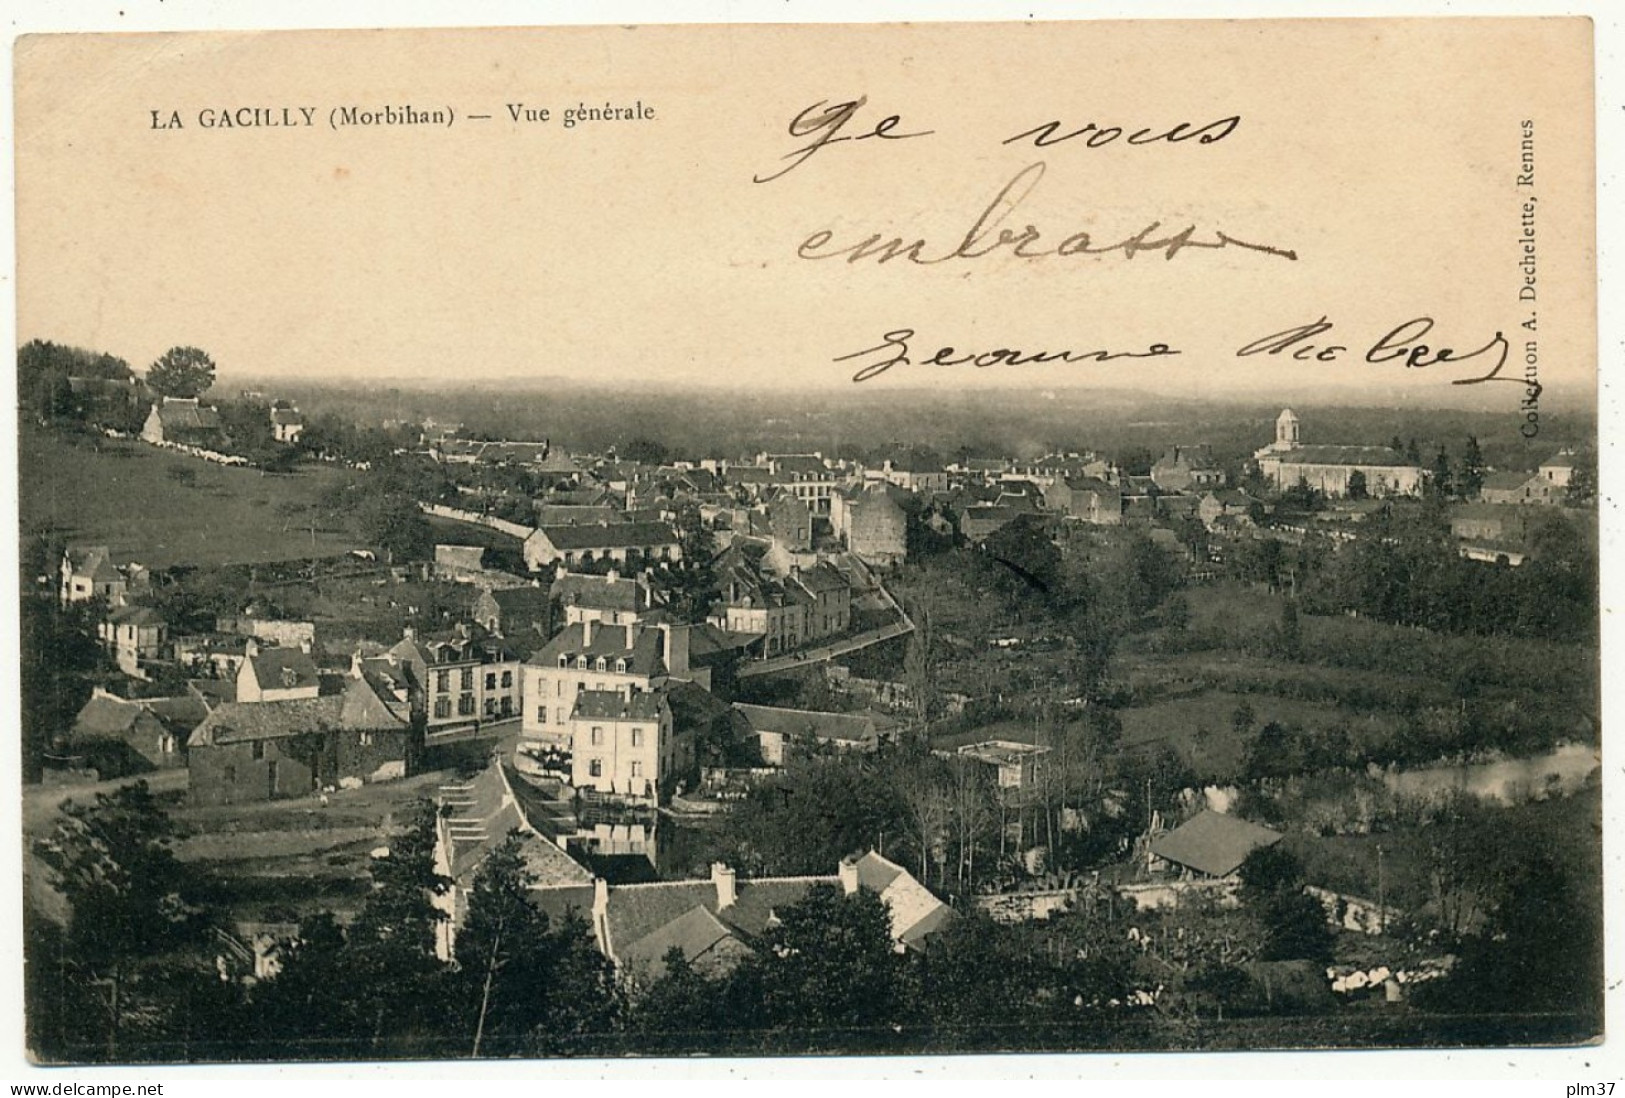 LA GACILLY (Morbihan) — Vue générale
Je vous
embrasse
Jeanne
Collection A. Dechelette, Rennes
delcampe.net
plm37